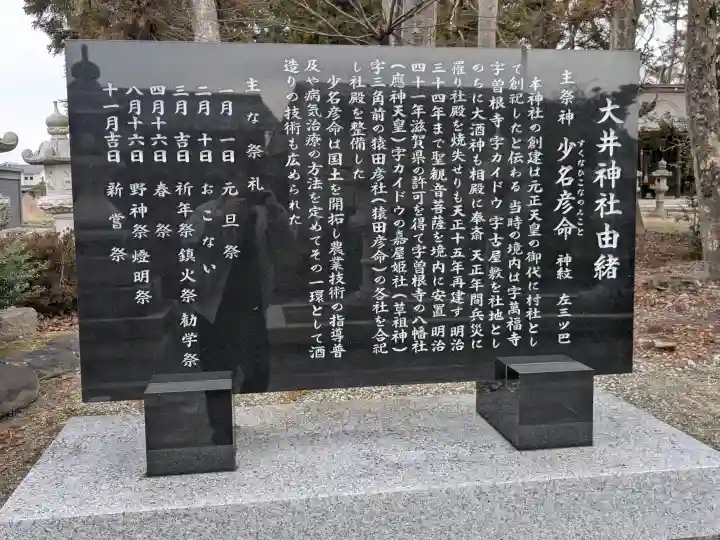 大井神社由緒
主祭神 少名彦命 神紋 左三ツ巴
すくなひこなのみこと
本神社の創建は元正天皇の御代に村社とし
て創祀したと伝わる 当時の境内は字萬福寺
字曽根寺 字カイドウ 字古屋敷を社地とし
のちに大酒神も相殿に奉斎 天正年間兵災に
罹り社殿を焼失せりも天正十五年再建す 明治
三十四年まで聖観音菩薩を境内に安置 明治
四十一年滋賀県の許可を得て字曽根寺の八幡社
(應神天皇)字カイドウの嘉屋姫社(草祖神)
字三角前の猿田彦社(猿田彦命)の各社を合祀
し社殿を整備した
少名彦命は国土を開拓し農業技術の指導普
及や病気治療の方法を定めてその一環として酒
造りの技術も広められた
主な祭礼
一月 一日 元旦祭
二月 十日 おこない
三月 吉日 祈年祭 鎮火祭 勧学祭
四月十六日 春祭
八月十六日 野神祭 燈明祭
十一月吉日 新嘗祭